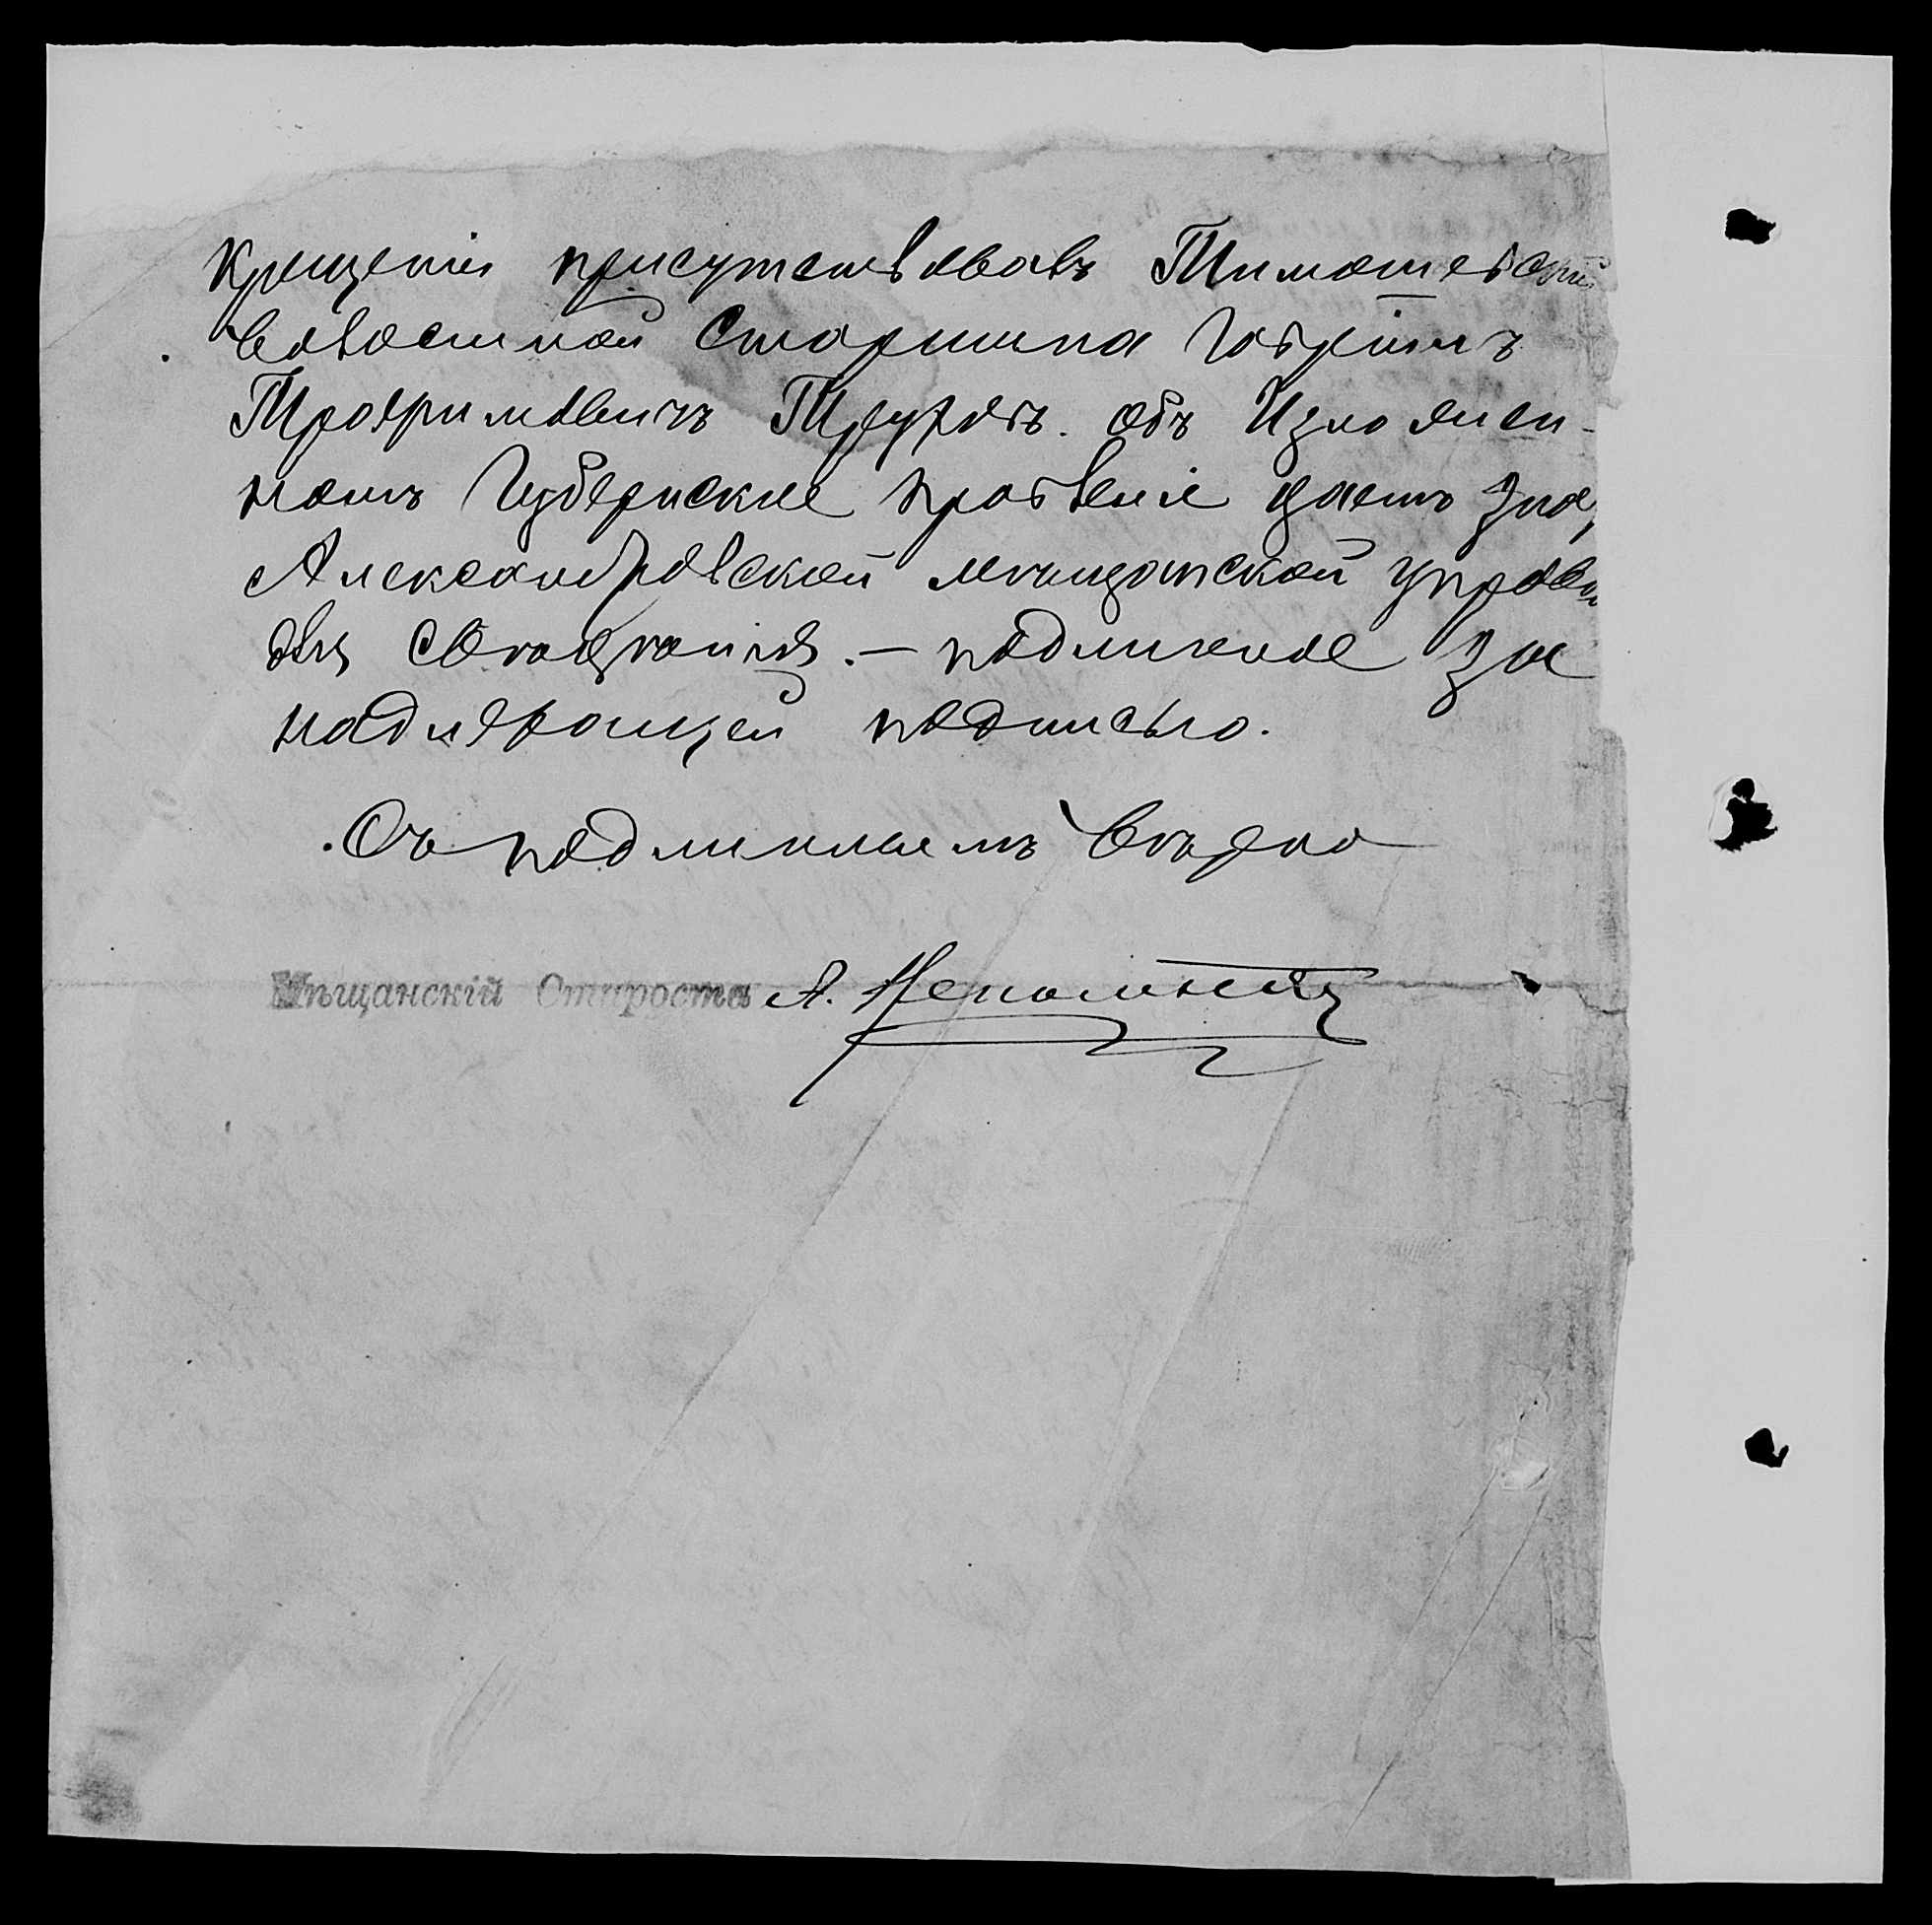 крещенія присутствовалъ Тимошевскій
волостной Старшина Гавріилъ
Трофимовичъ Трубовъ. объ Изложен-
номъ Губернское правленіе даетъ знать
Александровской мѣщанской управѣ
для свѣденія. — подлинное за
надлежащей подписью.
Съ подлиннымъ Вѣрно
Мѣщанскій Староста А.